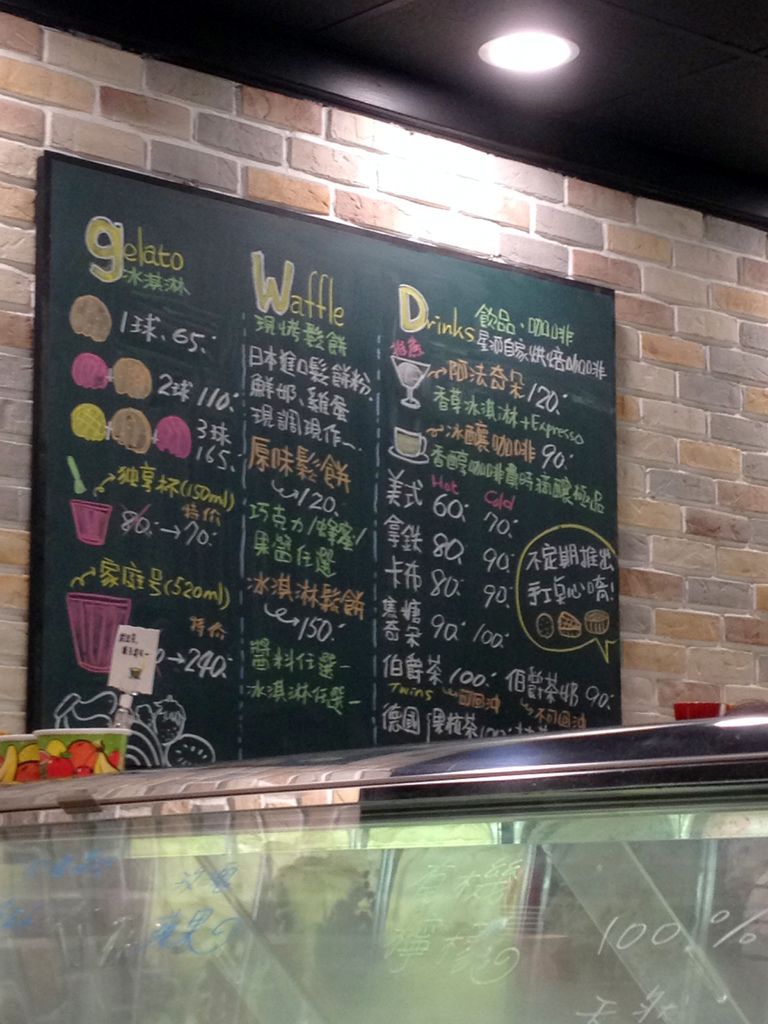 gelato
冰淇淋
1球. 65.
2球 110.
3球
165.
独享杯(150ml)
特价
80. → 70.
家庭号(520ml)
特价
→ 240.
Waffle
現烤鬆餅
日本進口鬆餅粉.
鮮奶.雞蛋
現調現作
原味鬆餅
120.
巧克力/蜂蜜/
果醬任選
冰淇淋鬆餅
150.
醬料任選一
冰淇淋任選一
Drinks 飲品.咖啡
自家烘焙咖啡
推薦
阿法奇朵 120.
香草冰淇淋+Expresso
冰釀咖啡 90.
香醇咖啡費時 極品
Hot Cold
美式 60. 70.
拿鐵 80. 90.
卡布 80. 90.
焦糖
奇朵 90. 100.
不定期推出
手工點心唷!
伯爵茶 100. 伯爵茶奶 90.
Twins 可回沖 不可回沖
德國
100%
天然
檸檬
蘋果